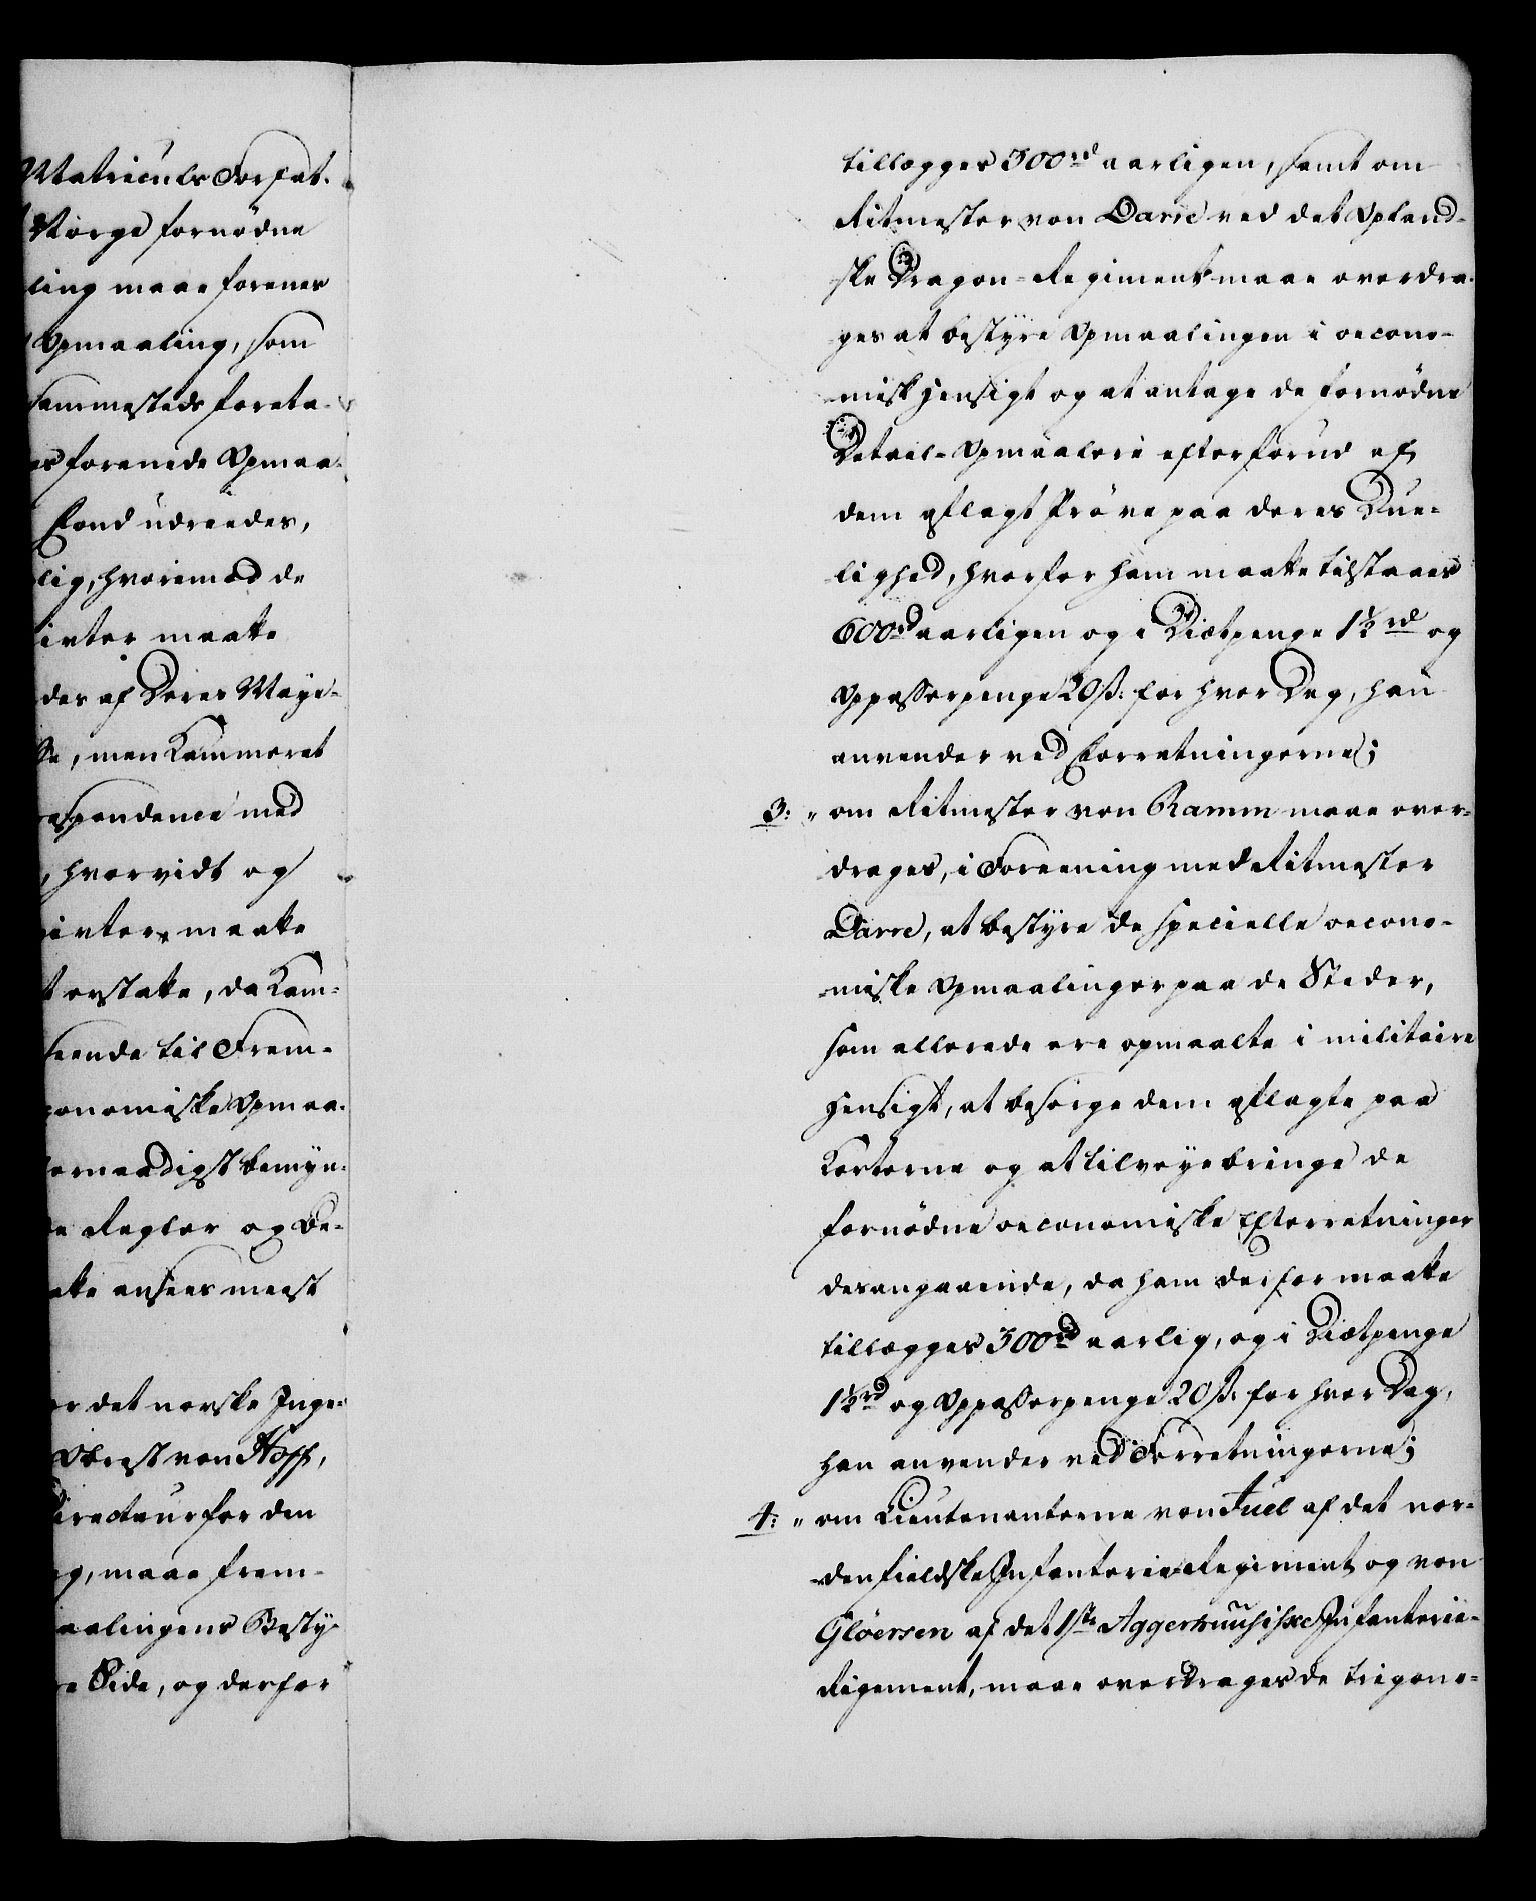 Matriculs Forfat-
Norge fornødne
ling maae forenes
Opmaaling, som
sammesteds foreta-
es forenede Opmaa-
Fond udreedes,
lig, hvorimod de
inter maatte
des af Deres Maje-
se, men Kammeret
espondence med
, hvorvidt og
inter maatte
t erstatte, da Kam-
seende til Frem-
conomiske Opmaa-
lernaadigst bemyn-
e Regler og Be-
atte ansees meest
or det norske Inge-
Obrist von Hoff,
Directeur for den
g, maae frem-
aalingens Besty-
e Side, og derfor
tillægges 300rd aarligen, samt om
Ritmester von Darre ved det Opland-
ske Dragon-Regiment maae overdra-
ges at bestyre Opmaalingen i oecono-
misk Hensigt og at antage de fornødne
Detail-Opmaalere efter forud af
dem aflagt Prøve paa deres Due-
lighed, hvorfor ham maatte tilstaaes
600rd aarligen og i Diætpenge 1½rd og
Oppasserpenge 20 ß: for hver Dag, han
anvender ved Forretningerne;
3: " om Ritmester von Ramm maae over-
drages, i Foreening med Ritmester
Darre, at bestyre de specielle oecono-
miske Opmaalinger paa de Steder,
som allerede ere opmaalte i militaire
Hensigt, at besørge dem aflagte paa
Korterne og at tilveyebringe de
fornødne oeconomiske Efterretninger
desangaaende, da ham derfor maatte
tillægges 300rd aarlig, og i Diætpenge
1½rd og Oppasserpenge 20 ß: for hver Dag,
han anvender ved Forretningerne;
4: " om Lieutenanterne von Juel af det nor-
denfieldske Infanterie Regiment og von
Gløersen af det 1ste Aggerhuusiske Infanterie-
Regement, maae overdrages de trigono-